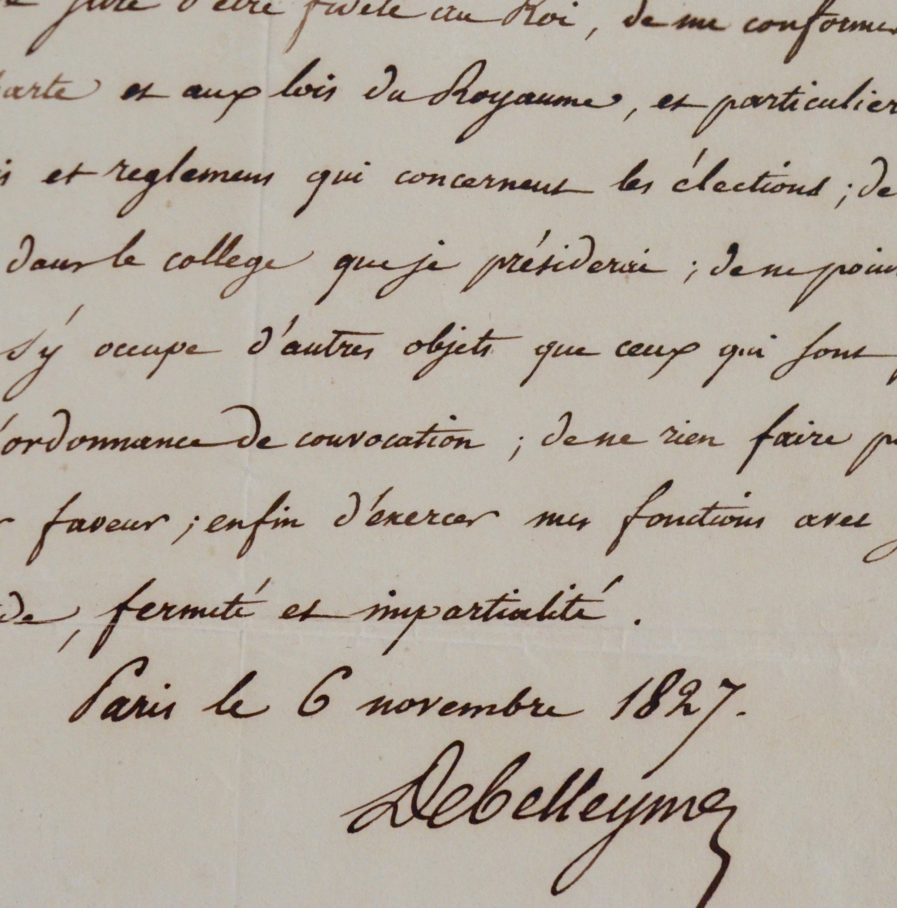 jure d'être fidele au Roi, de me conformer
arte et aux lois du Royaume, et particulier
is et reglemens qui concernent les élections; de
dans le college que je présiderai; de ne poin
s'y occupe d'autres objets que ceux qui sont
'ordonnance de convocation; de ne rien faire p
r faveur; enfin d'exercer mes fonctions avec
de, fermeté et impartialité.
Paris le 6 novembre 1827.
Debelleyme